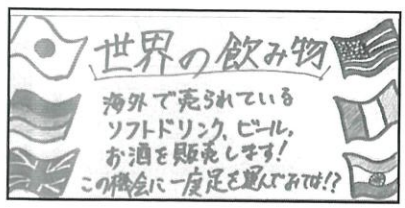 世界の飲み物
海外で売られている
ソフトドリンク、ビール、
お酒を販売します!
この機会に一度足を運んでみては!?